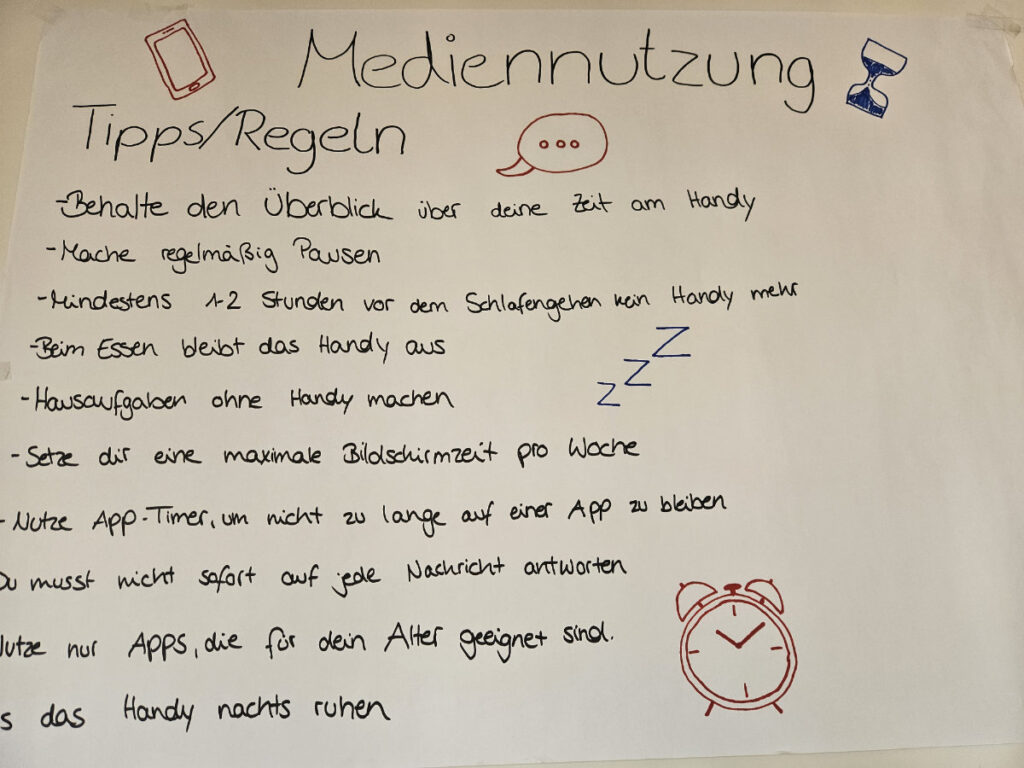 Mediennutzung
Tipps/Regeln
-Behalte den Überblick über deine Zeit am Handy
-Mache regelmäßig Pausen
-Mindestens 1-2 Stunden vor dem Schlafengehen kein Handy mehr
-Beim Essen bleibt das Handy aus
-Hausaufgaben ohne Handy machen
-Setze dir eine maximale Bildschirmzeit pro Woche
-Nutze App-Timer, um nicht zu lange auf einer App zu bleiben
Du musst nicht sofort auf jede Nachricht antworten
Nutze nur Apps, die für dein Alter geeignet sind.
s das Handy nachts ruhen
Z
Z
Z